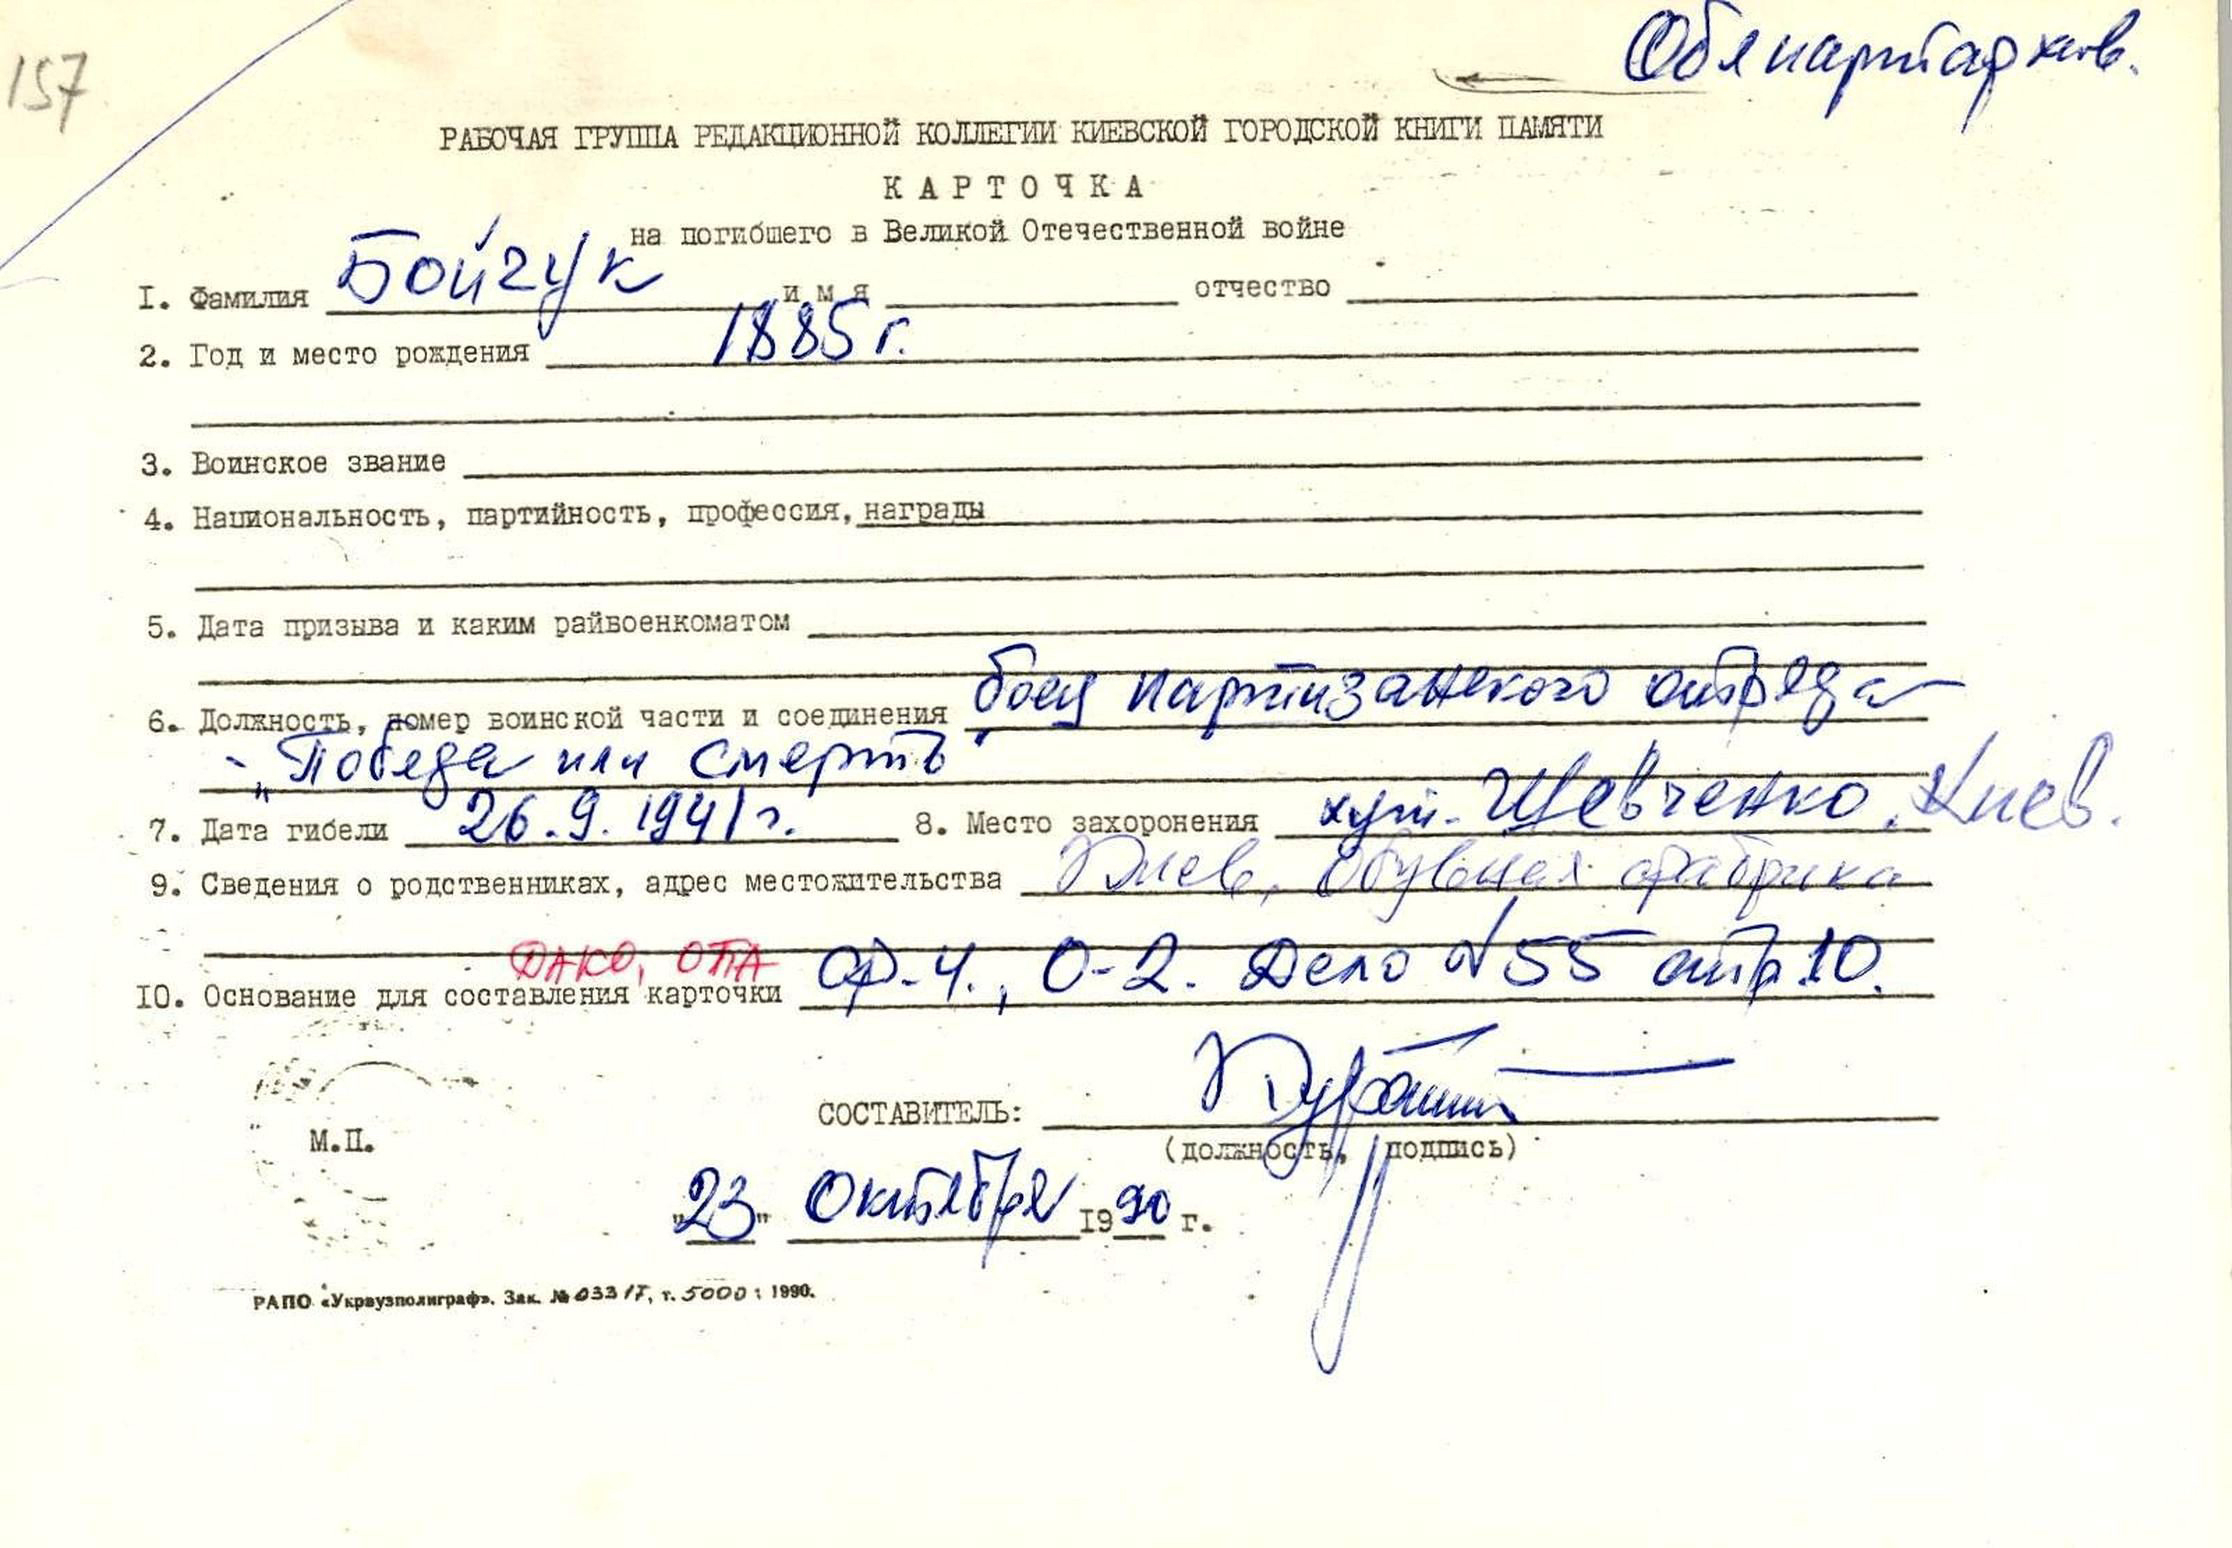 157
Облпартархив.
РАБОЧАЯ ГРУППА РЕДАКЦИОННОЙ КОЛЛЕГИИ КИЕВСКОЙ ГОРОДСКОЙ КНИГИ ПАМЯТИ
КАРТОЧКА
на погибшего в Великой Отечественной войне
I. Фамилия Бойчук имя отчество
2. Год и место рождения 1885 г.
3. Воинское звание
4. Национальность, партийность, профессия, награды
5. Дата призыва и каким райвоенкоматом
6. Должность, номер воинской части и соединения боец партизанского отряда
- „Победа или смерть"
7. Дата гибели 26.9.1941 г. 8. Место захоронения хут. Шевченко, Киев.
9. Сведения о родственниках, адрес местожительства Киев, Обувная фабрика
ДАКО, ОПА
I0. Основание для составления карточки ф-4., О-2. Дело №55 стр 10.
СОСТАВИТЕЛЬ:
М.П.
(должность, подпись)
"23" Октября 1990 г.
РАПО «Укрвузполиграф». Зак. № 033 17, т. 5000: 1990.